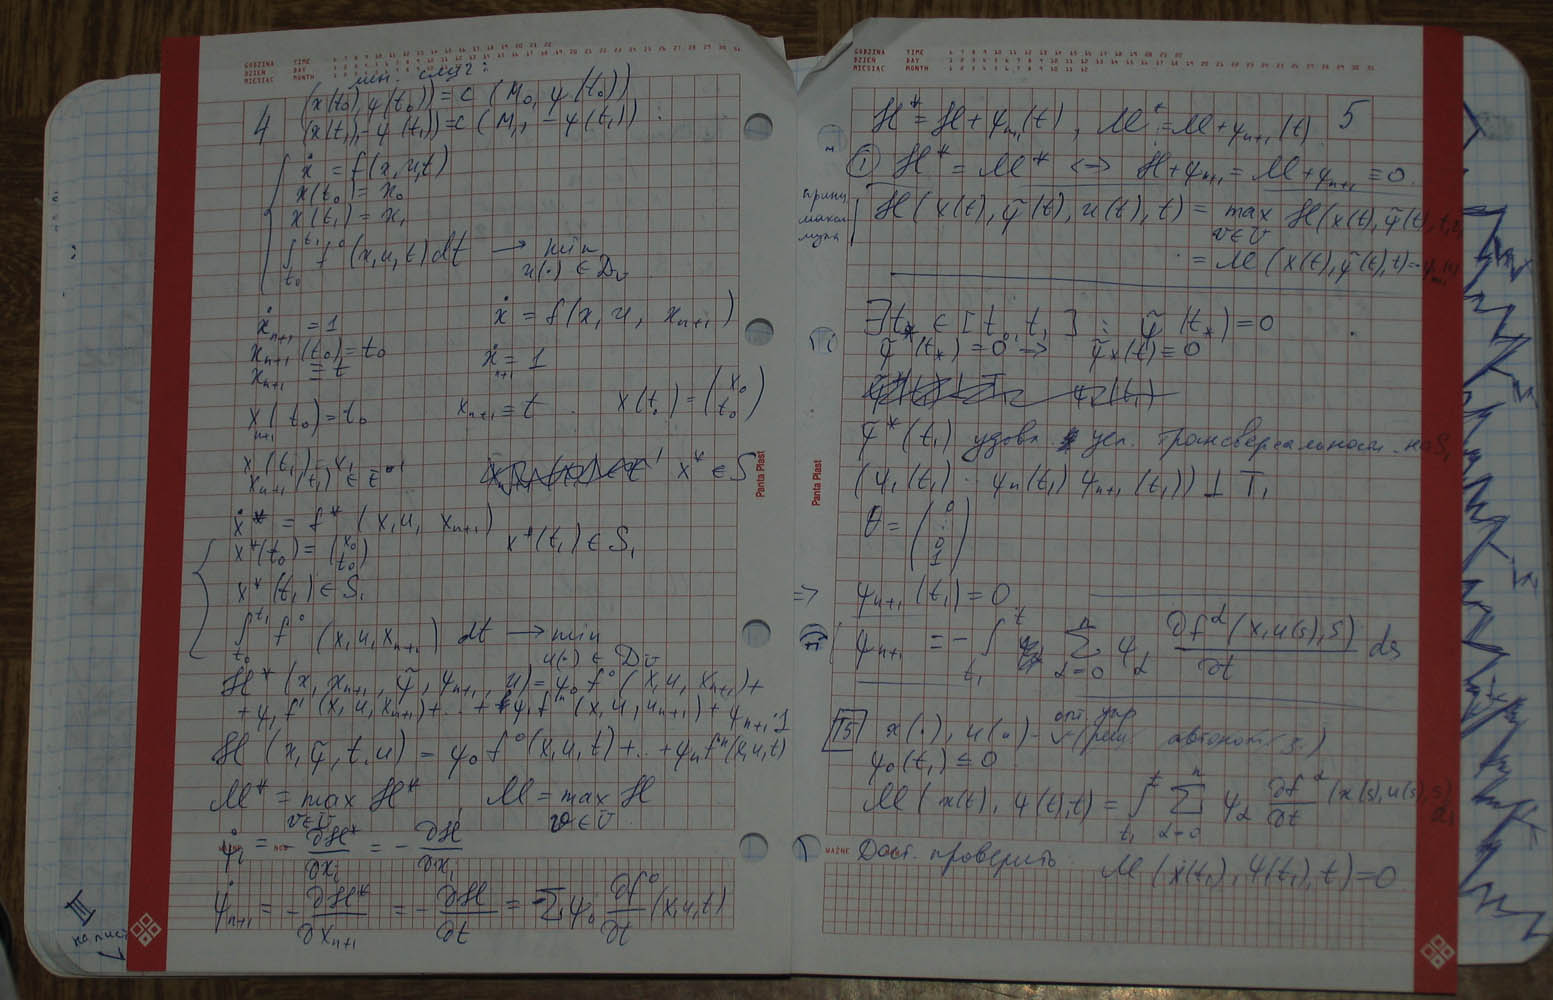 GODZINA TIME
DZIEŃ DAY
MIESIĄC MONTH
4
(x(t₀), ψ(t₀)) = c (M₀, ψ(t₀))
(x(t₁), -ψ(t₁)) = c (M₁, -ψ(t₁))
ẋ = f(x, u, t)
x(t₀) = x₀
x(t₁) = x₁
∫_{t₀}^{t₁} f⁰(x, u, t) dt → min
u(·) ∈ D_U
ẋₙ₊₁ = 1 ẋ = f(x, u, xₙ₊₁)
xₙ₊₁(t₀) = t₀
xₙ₊₁ = t ẋₙ₊₁ = 1
xₙ₊₁(t₀) = t₀ xₙ₊₁ = t x(t₀) = (x₀ t₀)
x(t₁) = x₁
xₙ₊₁(t₁) ∈ E¹ x* ∈ S
ẋ* = f*(x, u, xₙ₊₁)
x*(t₀) = (x₀ t₀) x*(t₁) ∈ S₁
x*(t₁) ∈ S₁
∫_{t₀}^{t₁} f⁰(x, u, xₙ₊₁) dt → min
u(·) ∈ D_U
H*(x, xₙ₊₁, ψ̃, ψₙ₊₁, u) = ψ₀ f⁰(x, u, xₙ₊₁) +
+ ψ₁ f¹(x, u, xₙ₊₁) + ... + ψₙ fⁿ(x, u, uₙ₊₁) + ψₙ₊₁·1
H(x, ψ̃, t, u) = ψ₀ f⁰(x, u, t) + .. + ψₙ fⁿ(x, u, t)
M* = max H* M = max H
v∈U v∈U
ψ̇ᵢ = -∂H*/∂xᵢ = -∂H/∂xᵢ
ψ̇ₙ₊₁ = -∂H*/∂xₙ₊₁ = -∂H/∂t = -Σ ψ₀ ∂f⁰/∂t (x, u, t)
III
Panta Plast
GODZINA TIME
DZIEŃ DAY
MIESIĄC MONTH
5
H* = H + ψₙ₊₁(t), M* = M + ψₙ₊₁(t)
① H* = M* <=> H + ψₙ₊₁ = M + ψₙ₊₁ ≡ 0
принц.
макси
мума
H(x(t), ψ̃(t), u(t), t) = max H(x(t), ψ̃(t), t,
v∈U
= M(x(t), ψ̃(t), t) = -ψₙ₊₁(t)
∃ t* ∈ [t₀, t₁] : ψ̃(t*) = 0
ψ̃(t*) = 0 => ψ̃*(t) ≡ 0
ψ̃*(t₁) удовл. усл. трансверсальност. на S₁
(ψ₁(t₁) ... ψₙ(t₁) ψₙ₊₁(t₁)) ⊥ T₁
θ = (0 : 0 1)
=> ψₙ₊₁(t₁) = 0
ψₙ₊₁ = -∫_{t₁}^{t} Σ_{α=0}^{n} ψ_α ∂f^α(x, u(s), s)/∂t ds
T5 x(·), u(·) - опт. пар
ψ₀(t₁) ≤ 0
M(x(t), ψ(t), t) = ∫_{t₁}^{t} Σ_{α=0}^{n} ψ_α ∂f^α/∂t (x(s), u(s), s) ds
WAŻNE
Дост. проверить M(x(t₁), ψ(t₁), t) = 0
Panta Plast